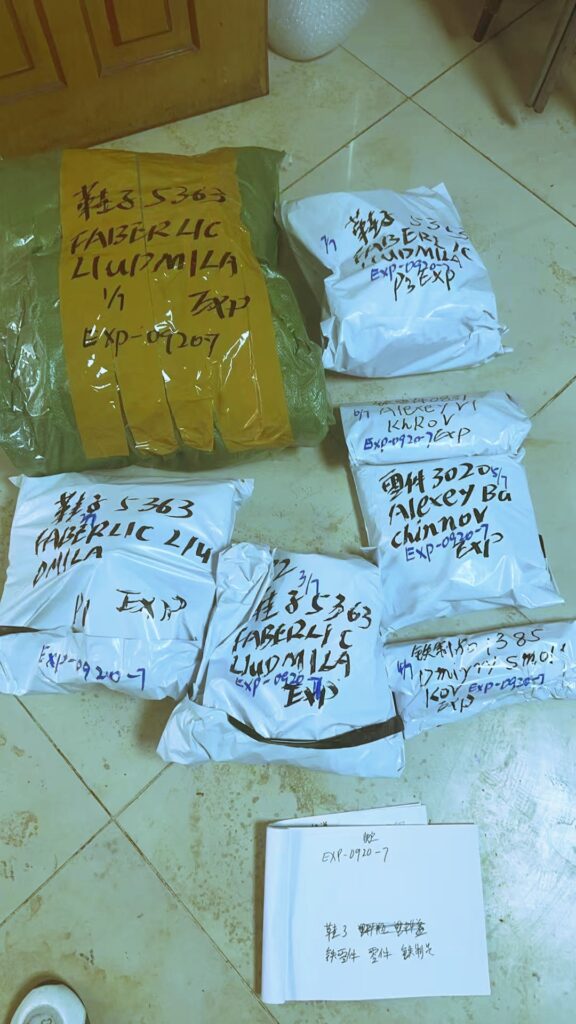 鞋子 5363
FABERLIC
LIUDMILA
1/7 EXP
EXP-0920-7
鞋子 5363
7/7 FABERLIC
LIUDMILA
EXP-0920-7
P3 EXP
6/7 Alexey Vi
KhRoV
EXP-0920-7 EXP
零件 3020 5/7
Alexey Ba
chinnov
EXP-0920-7
EXP
鞋子 5363
FABERLIC LIU
DMILA
P1 EXP
EXP-0920-7
3/7
鞋子 5363
FABERLIC
LIUDMILA
EXP-0920-7
EXP
铁制品 1385
Dmiyriy Smol
Kov EXP-0920-7
EXP
EXP-0920-7
鞋子
铁零件 零件 铁制品